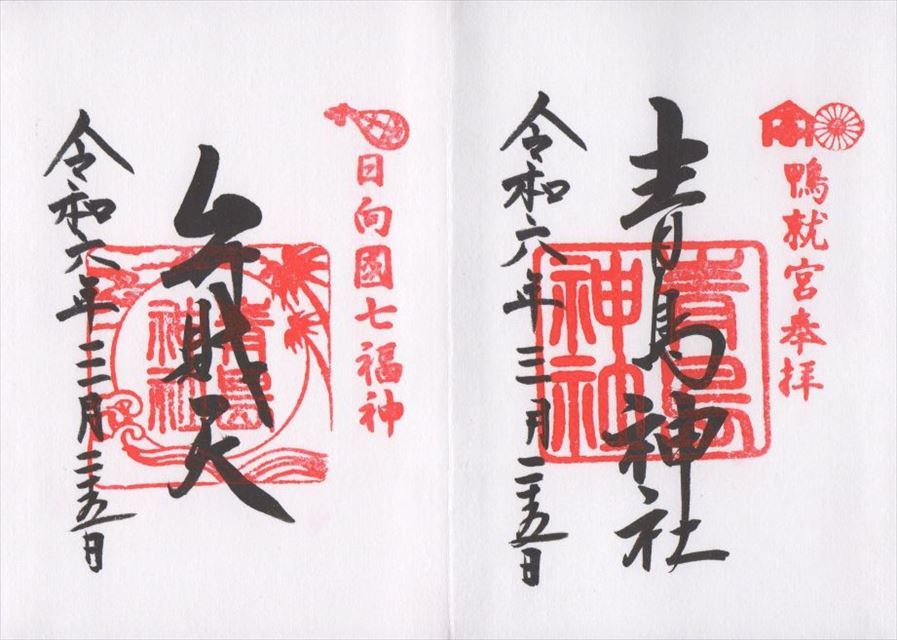 鴨就宮奉拝
青島神社
青島
神社
令和六年三月二十五日
日向國七福神
弁財天
青島
神社
令和六年三月二十五日